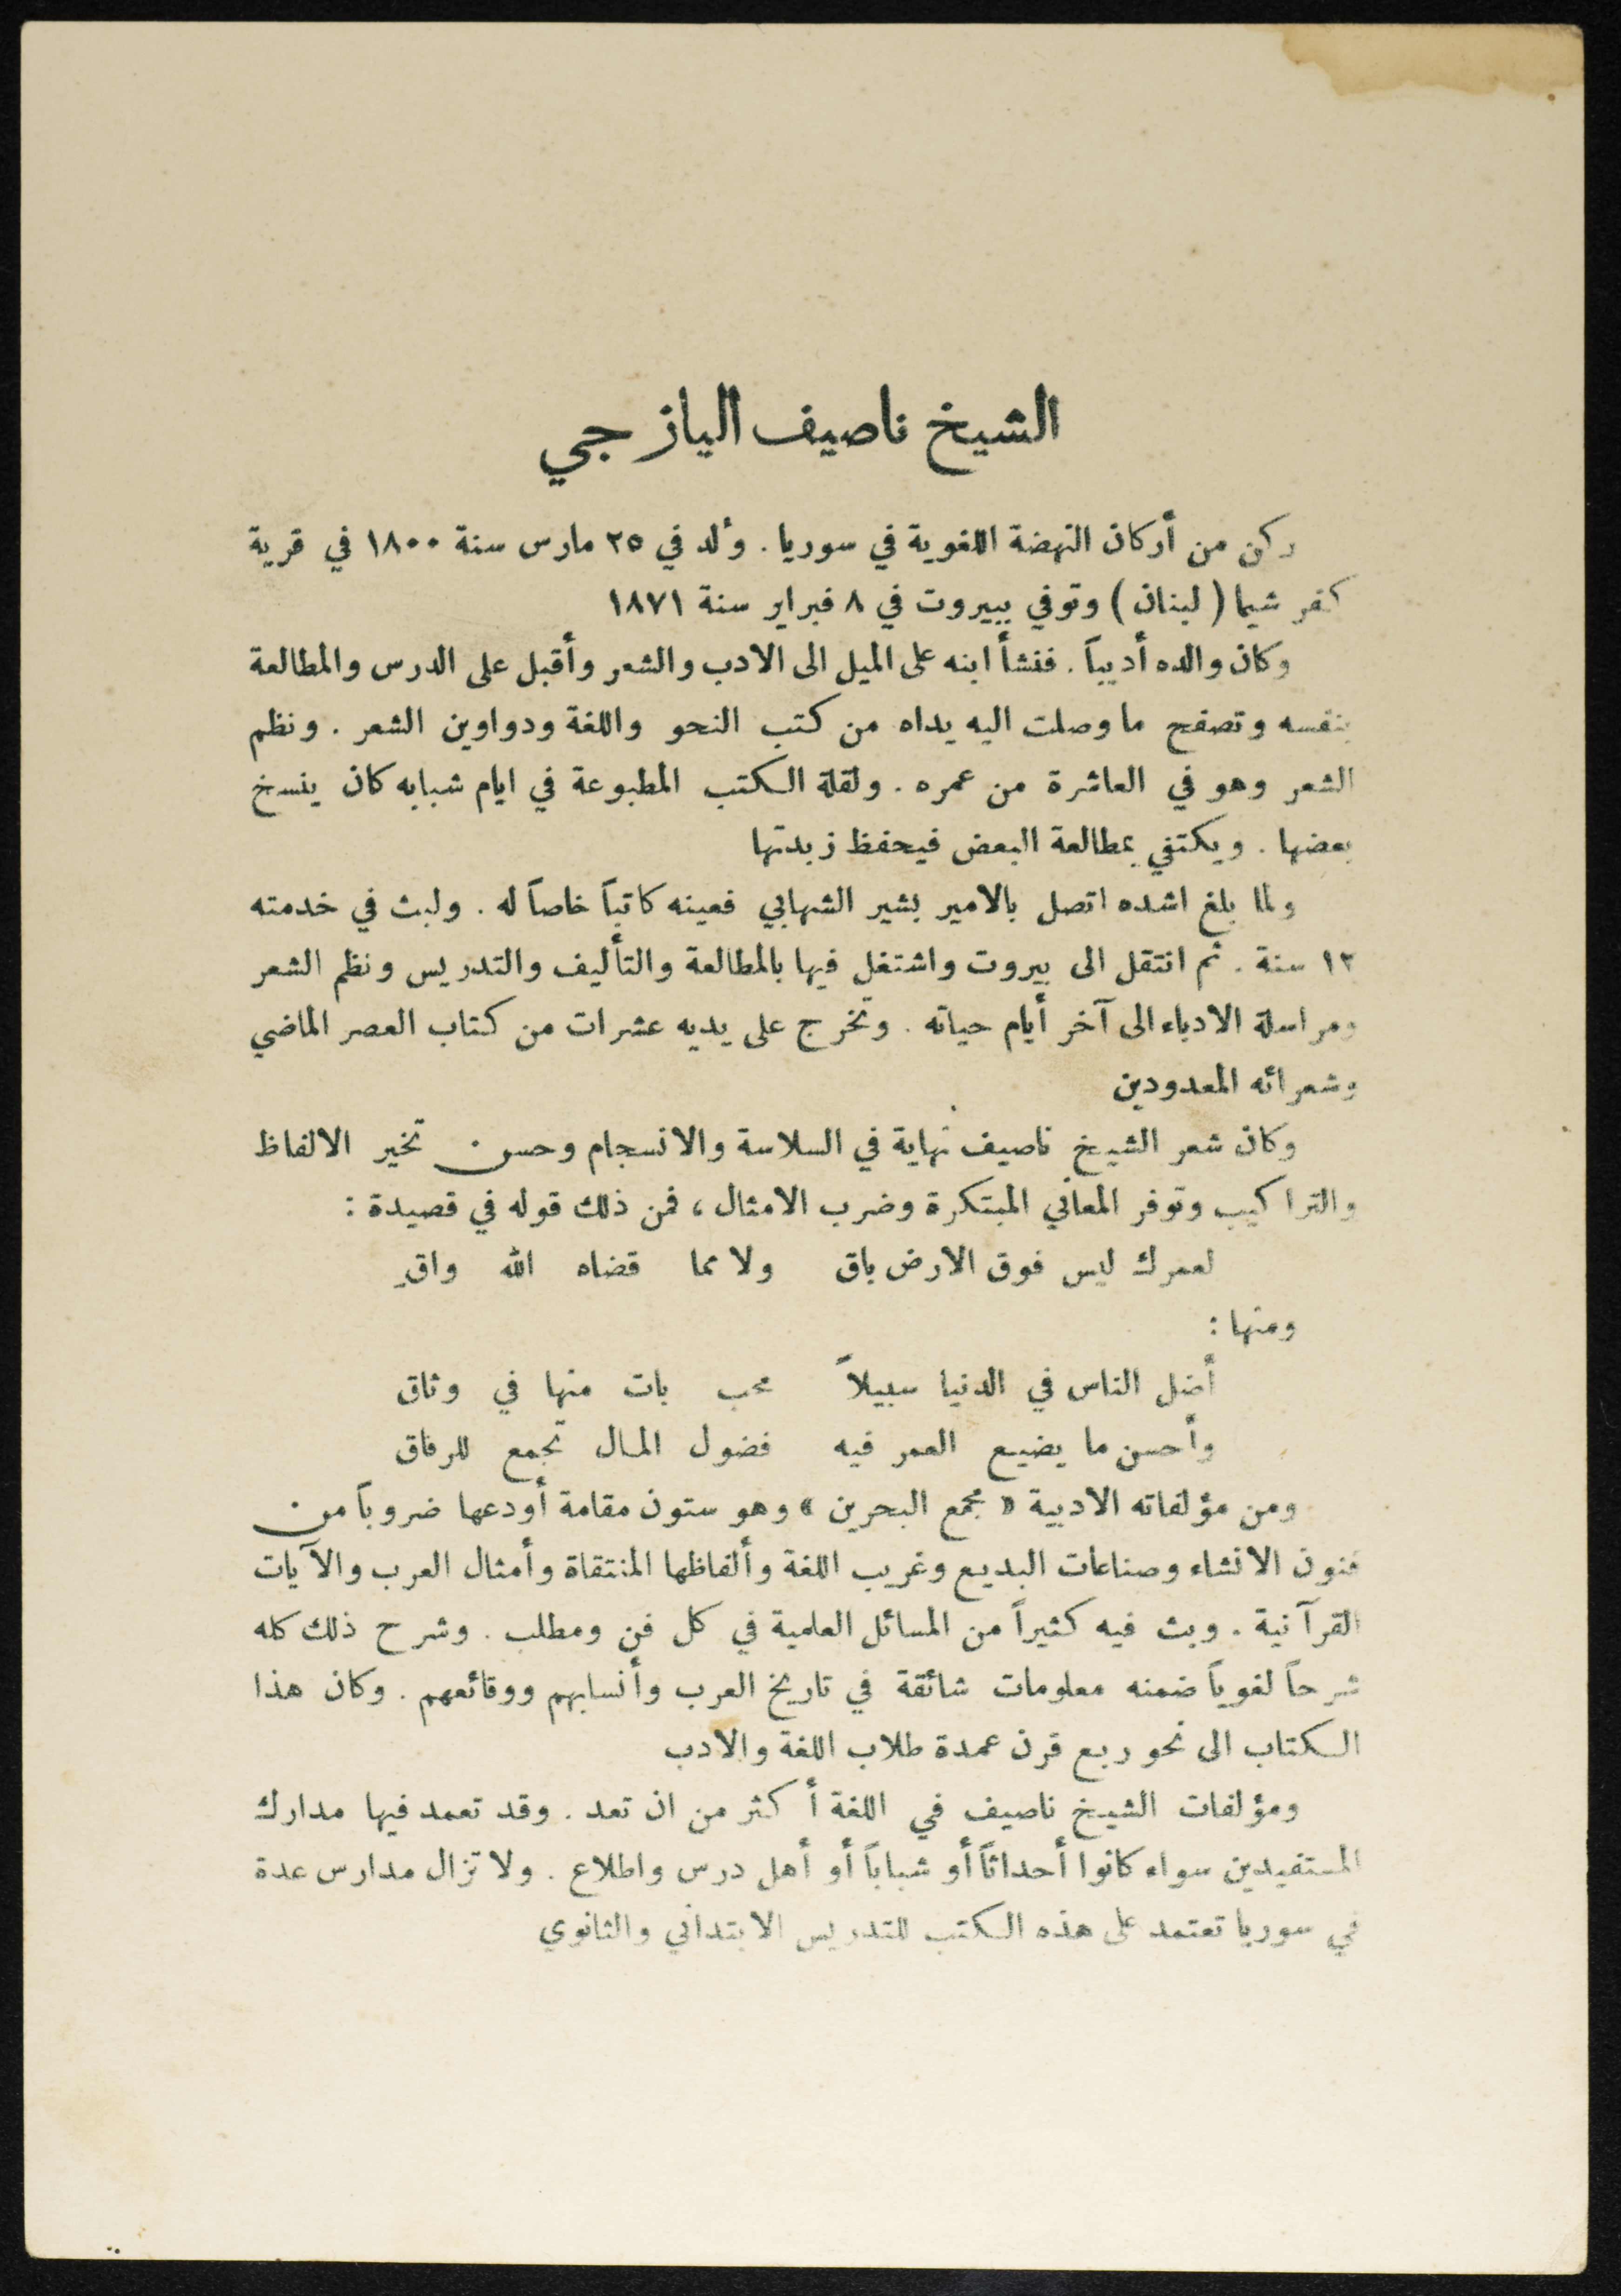 الشيخ ناصيف اليازجي
ركن من أركان النهضة اللغوية في سوريا . وُلد في ٢٥ مارس سنة ١٨٠٠ في قرية
كفر شيما ( لبنان ) وتوفي ببيروت في ٨ فبراير سنة ١٨٧١
وكان والده أديباً . فنشأ ابنه على الميل الى الادب والشعر وأقبل على الدرس والمطالعة
بنفسه وتصفح ما وصلت اليه يداه من كتب النحو واللغة ودواوين الشعر . ونظم
الشعر وهو في العاشرة من عمره . ولقلة الكتب المطبوعة في ايام شبابه كان ينسخ
بعضها . ويكتفي بمطالعة البعض فيحفظ زبدتها
ولما بلغ اشده اتصل بالامير بشير الشهابي فعينه كاتباً خاصاً له . ولبث في خدمته
١٢ سنة . ثم انتقل الى بيروت واشتغل فيها بالمطالعة والتأليف والتدريس ونظم الشعر
ومراسلة الادباء الى آخر أيام حياته . وتخرج على يديه عشرات من كتاب العصر الماضي
وشعرائه المعدودين
وكان شعر الشيخ ناصيف نهاية في السلاسة والانسجام وحسن تخير الالفاظ
والتراكيب وتوفر المعاني المبتكرة وضرب الامثال ، فمن ذلك قوله في قصيدة :
لعمرك ليس فوق الارض باق ولا مما قضاه الله واقِ
ومنها :
أضل الناس في الدنيا سبيلاً محب بات منها في وثاق
وأحسن ما يضيع العمر فيه فضول المال تجمع للرفاق
ومن مؤلفاته الادبية « مجمع البحرين » وهو ستون مقامة أودعها ضروباً من
فنون الانشاء وصناعات البديع وغريب اللغة وألفاظها المنتقاة وأمثال العرب والآيات
القرآنية . وبث فيه كثيراً من المسائل العلمية في كل فن ومطلب . وشرح ذلك كله
شرحاً لغوياً ضمنه معلومات شائقة في تاريخ العرب وأنسابهم ووقائعهم . وكان هذا
الكتاب الى نحو ربع قرن عمدة طلاب اللغة والادب
ومؤلفات الشيخ ناصيف في اللغة أكثر من ان تعد . وقد تعمد فيها مدارك
المستفيدين سواء كانوا أحداثاً أو شباباً أو أهل درس واطلاع . ولا تزال مدارس عدة
في سوريا تعتمد على هذه الكتب للتدريس الابتدائي والثانوي